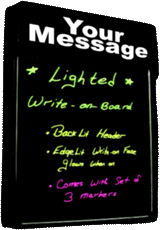 Your
Message
Lighted
Write-on-Board
• Back Lit Header
• Edge Lit Write-on Face
glows when on
• Comes With Set of
3 markers